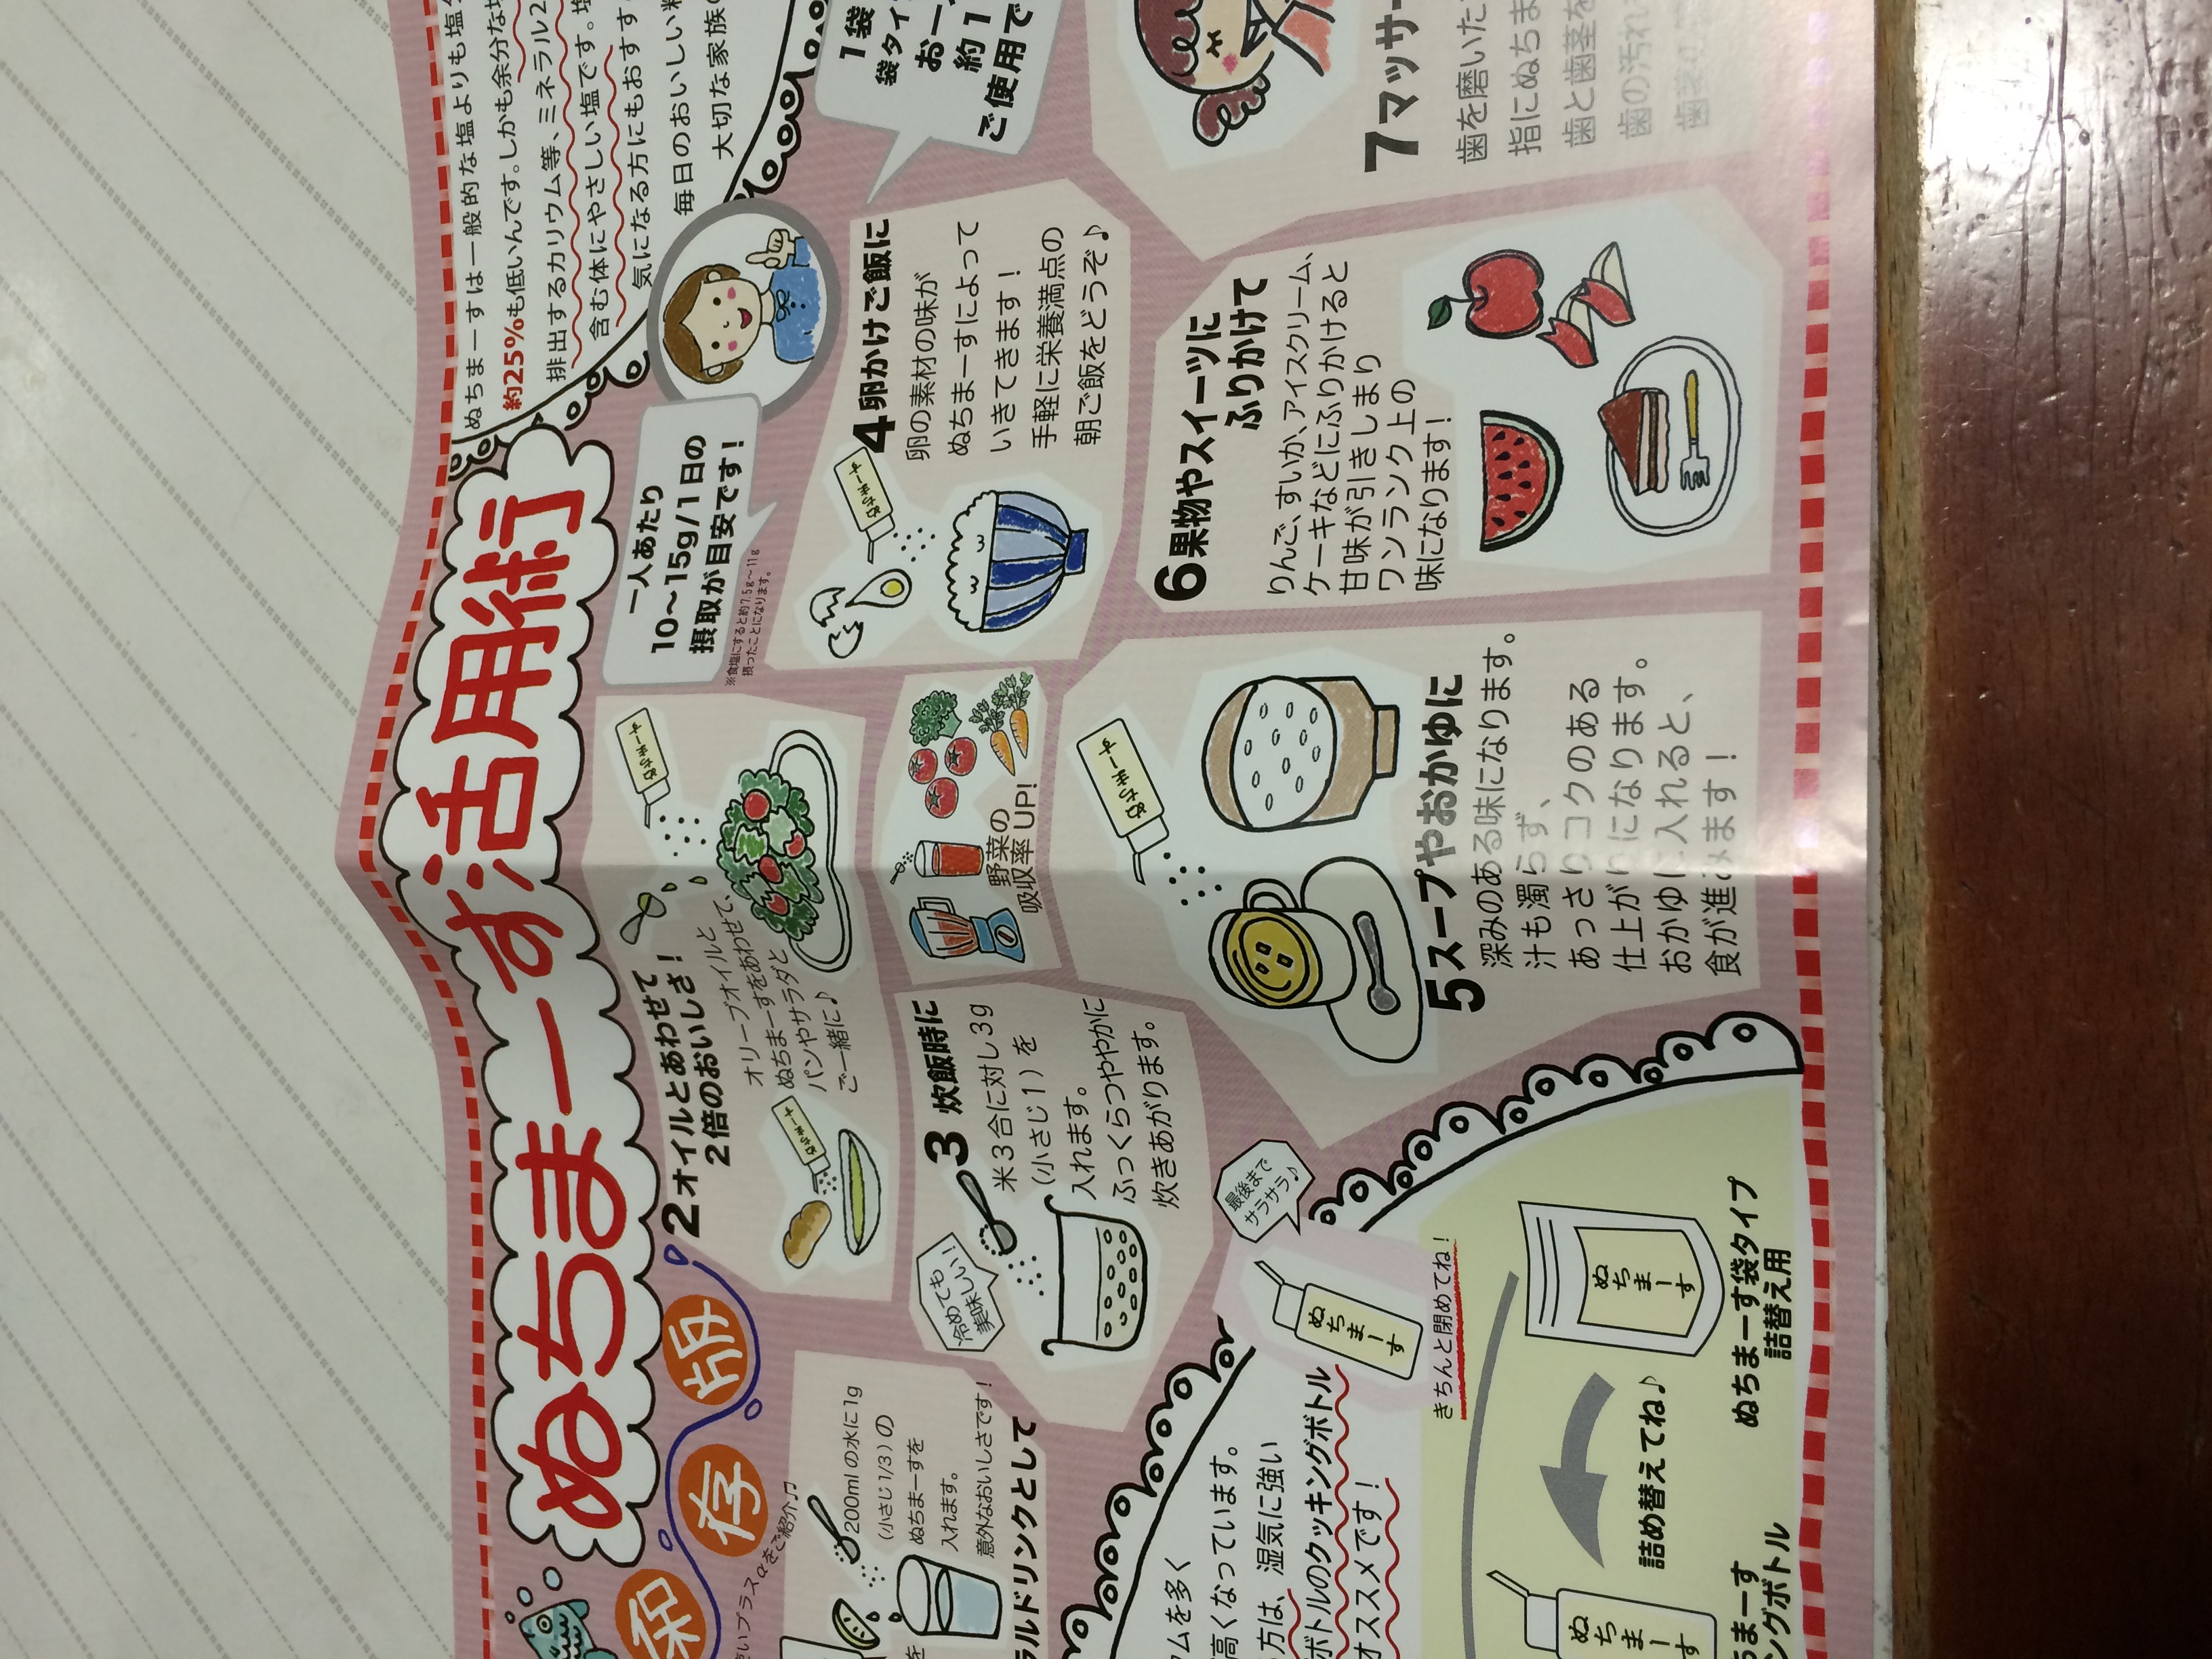 ぬちまーす活用術
保存版
ぬちまーすは一般的な塩よりも塩分
約25%も低いんです。しかも余分な塩
排出するカリウム等、ミネラル2
含む体にやさしい塩です。塩
気になる方にもおすす
毎日のおいしい料
大切な家族の
一人あたり
10〜15g/1日の
摂取が目安です!
※食塩にすると約7.5g〜11g
摂ったことになります。
1袋
袋タイ
お一
約1
ご使用で
をご紹介♪
200mlの水に1g
(小さじ1/3)の
ぬちまーすを
入れます。
意外なおいしさです!
ラルドリンクとして
2オイルとあわせて
2倍のおいしさ!
オリーブオイルと
ぬちまーすをあわせて、
パンやサラダと
ご一緒に♪
ぬちまーす
ぬちまーす
3 炊飯時に
米3合に対し3g
(小さじ1)を
入れます。
ふっくらつややかに
炊きあがります。
冷めても
美味しい!
野菜の
吸収率UP!
4卵かけご飯に
卵の素材の味が
ぬちまーすによって
いきてきます!
手軽に栄養満点の
朝ご飯をどうぞ♪
ぬちまーす
5スープやおかゆに
深みのある味になります。
汁も濁らず、
あっさりコクのある
仕上がりになります。
おかゆに入れると、
食が進みます!
ぬちまーす
6果物やスイーツに
ふりかけて
りんご、すいか、アイスクリーム、
ケーキなどにふりかけると
甘味が引きしまり
ワンランク上の
味になります!
7マッサー
歯を磨いた
指にぬちま
歯と歯茎を
歯の汚れ
ムを多く
高くなっています。
方は、湿気に強い
ボトルのクッキングボトル
オススメです!
最後まで
サラサラ♪
ぬちまーす
きちんと閉めてね!
ぬちまーす
詰め替えてね♪
ぬちまーす
ぬちまーす袋タイプ
詰替え用
ちまーす
ングボトル